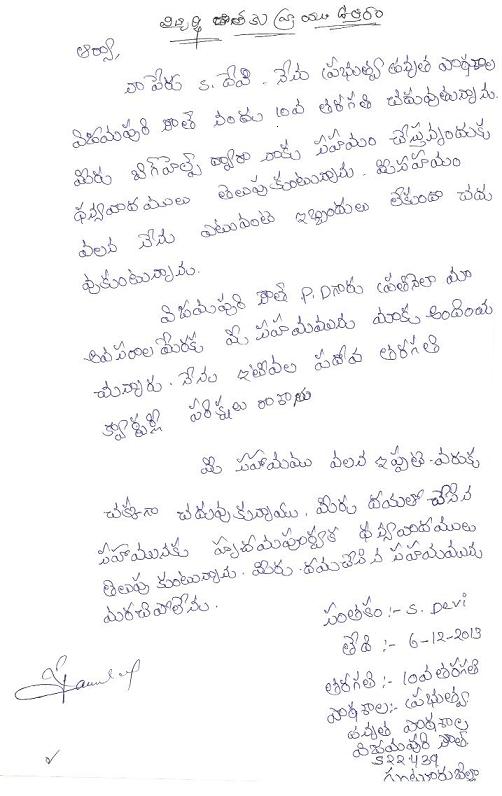 విద్యార్థి దాతకు వ్రాయు ఉత్తరం
ఆర్యా,
నా పేరు S. దేవి. నేను ప్రభుత్వ ఉన్నత పాఠశాల
విజయపురి సౌత్ నందు 10వ తరగతి చదువుతున్నాను.
మీరు బిగ్‌హెల్ప్ ద్వారా నాకు సహాయం చేస్తున్నందుకు
ధన్యవాదములు తెలుపుకుంటున్నాను. మీ సహాయం
వలన నేను ఎటువంటి ఇబ్బందులు లేకుండా చదు
వుకుంటున్నాను.
విజయపురి సౌత్ P.D గారు ప్రతినెలా మా
అవసరాల మేరకు మీ సహాయమును మాకు అందియ
చున్నారు. నేను ఇటీవల పదోవ తరగతి
క్వార్టర్లీ పరీక్షలు రాశాను
మీ సహాయము వలన ఇప్పటి వరకు
చక్కగా చదువుకున్నాము. మీరు దయతో చేసిన
సహాయమునకు హృదయపూర్వక ధన్యవాదములు
తెలుపుకుంటున్నాను. మీరు దయచేసిన సహాయమును
మరచిపోలేను.
సంతకం :- S. Devi
తేది :- 6-12-2013
తరగతి :- 10వ తరగతి
పాఠశాల :- ప్రభుత్వ
ఉన్నత పాఠశాల
విజయపురి సౌత్
522439
గుంటూరు జిల్లా